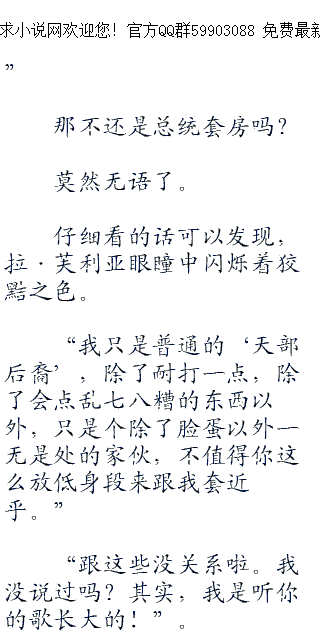 求小说网欢迎您！官方QQ群59903088 免费最新
”
那不还是总统套房吗？
莫然无语了。
仔细看的话可以发现，
拉·芙利亚眼瞳中闪烁着狡
黠之色。
“我只是普通的‘天部
后裔’，除了耐打一点，除
了会点乱七八糟的东西以
外，只是个除了脸蛋以外一
无是处的家伙，不值得你这
么放低身段来跟我套近
乎。”
“跟这些没关系啦。我
没说过吗？其实，我是听你
的歌长大的！”。